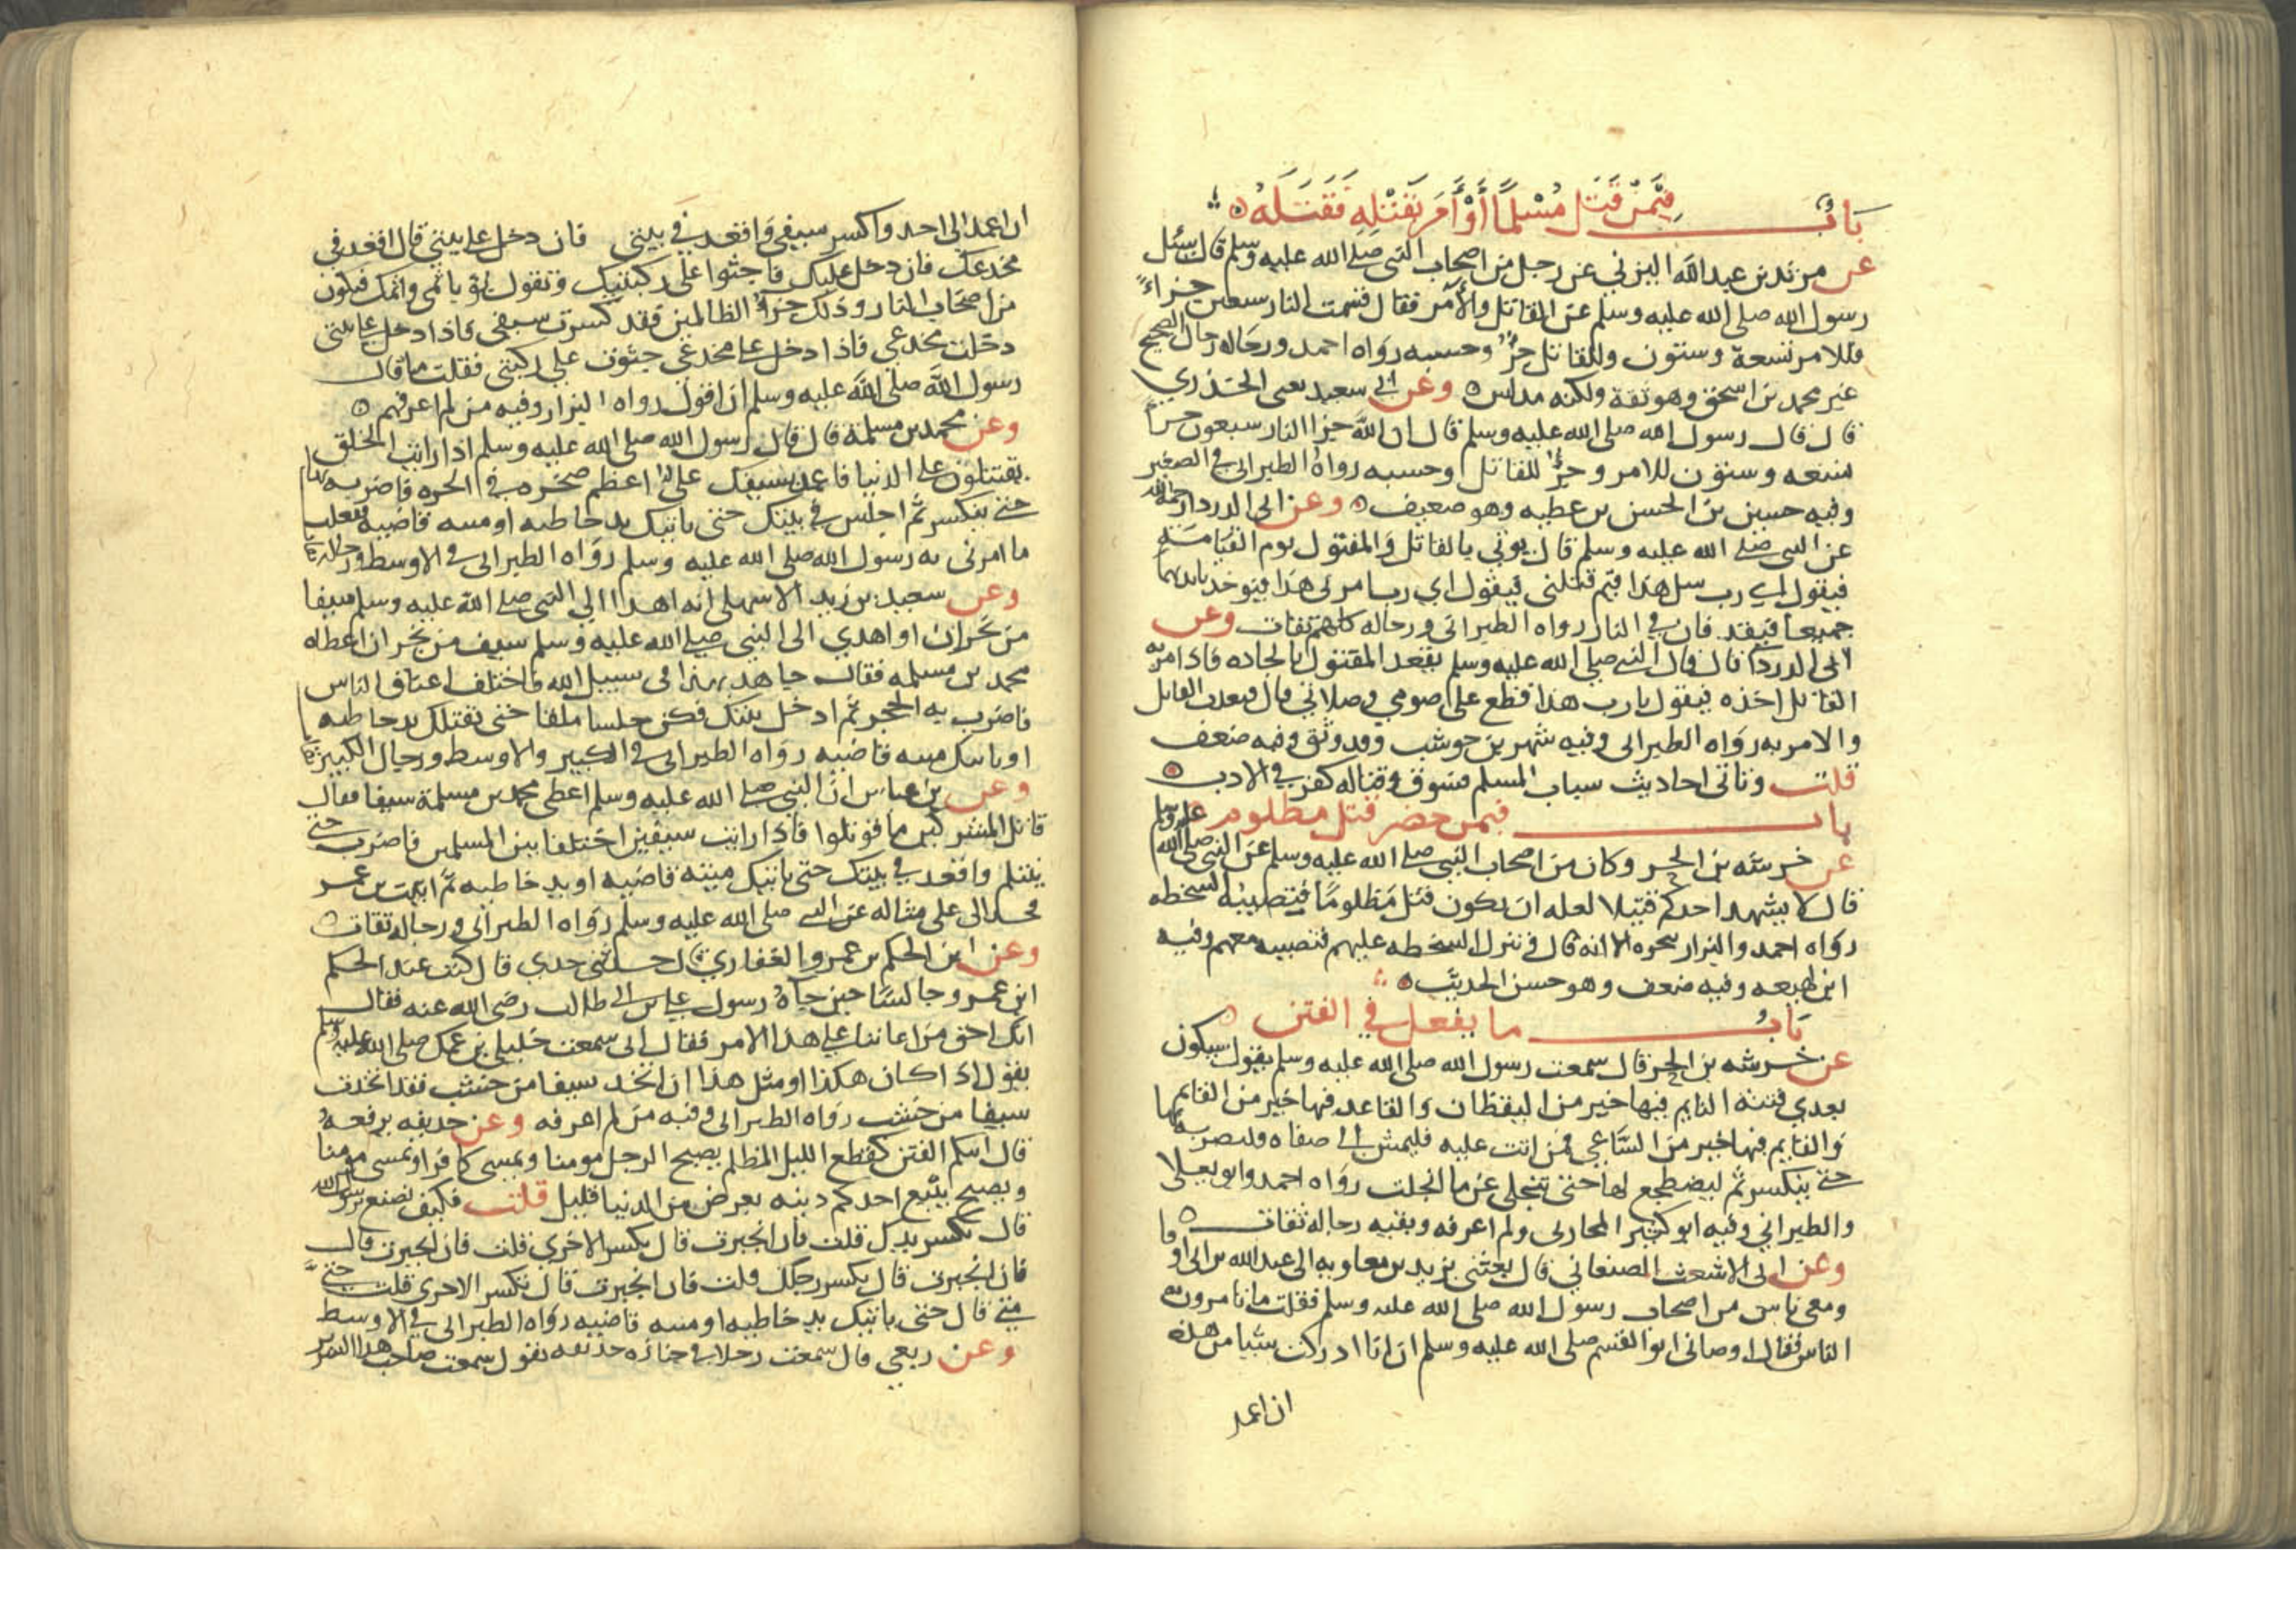 باب فيمن قتل مسلما أو أمر بقتله فقتله
عن مرثد بن عبد الله اليزني عن رجل من اصحاب النبي صلى الله عليه وسلم قال سئل
رسول الله صلى الله عليه وسلم عن القاتل والآمر فقال قسمت النار سبعين جزاءً
فللامر تسعة وستون وللقاتل جزؤ وحسبه رواه احمد ورجاله رجال الصحيح
غير محمد بن اسحق وهو ثقة ولكنه مدلس وعن ابي سعيد يعني الخذري
قال قال رسول الله صلى الله عليه وسلم قال ان الله جزا النار سبعون جزأ
تسعه وستون للامر وجزؤ للقاتل وحسبه رواه الطبراني في الصغير
وفيه حسين بن الحسن بن عطيه وهو ضعيف وعن ابي الدرداء
عن النبي صلى الله عليه وسلم قال يوتي بالقاتل والمقتول يوم القيامة
فيقول اي رب سل هذا فيم قتلني فيقول اي رب امرني هذا فيوخذ بايديهما
جميعا فيقذفان في النار رواه الطبراني ورجاله كلهم ثقات وعن
ابي الدرداء قال قال النبي صلى الله عليه وسلم يقعد المقتول بالجاده فاذا مر به
القاتل اخذه فيقول يارب هذا قطع علي صومي وصلاتي قال فيعذب القاتل
والامر به رواه الطبراني وفيه شهر بن حوشب وقد وثق وفيه ضعف
قلت وتاتي احاديث سباب المسلم فسوق وقتاله كفر في الادب
باب فيمن حضر قتل مظلوم
عن خرشه بن الحر وكان من اصحاب النبي صلى الله عليه وسلم عن النبي صلى الله عليه وسلم
قال لا يشهد احدكم قتيلا لعله ان يكون قتل مظلومًا فيتصيبه السخطه
رواه احمد والبزار بنحوه الا انه قال فتنزل السخطه عليهم فتصيبه معهم وفيه
ابن لهيعه وفيه ضعف وهو حسن الحديث
باب ما يفعل في الفتن
عن خرشه بن الحر قال سمعت رسول الله صلى الله عليه وسلم يقول سيكون
بعدي فتنه النايم فيها خير من اليقظان والقاعد فيها خير من القايم
والقايم فيها خير من الساعي فمن اتت عليه فليمش الى صفاه وليضرب بها
حتى ينكسر ثم ليضطجع لها حتى تنجلي عن ما انجلت رواه احمد وابو يعلا
والطبراني وفيه ابو كثير المحاربي ولم اعرفه وبقيه رجاله ثقات
وعن ابي الاشعث الصنعاني قال بعثني يزيد بن معاويه الى عبد الله بن ابي اوفا
ومعي ناس من اصحاب رسول الله صلى الله عليه وسلم فقلت ما تامرون به
الناس فقال اوصاني ابو القسم صلى الله عليه وسلم ان انا ادركت شيا من هذه
ان اعمد
ان اعمد الى احد واكسر سيفي واقعد في بيتي فان دخل علي بيتي قال اقعد في
مخدعك فان دخل عليك فاجثوا على ركبتيك وتقول بؤ باثمي واثمك فتكون
من اصحاب النار وذلك جزؤ الظالمين فقد كسرت سيفي فاذا دخل علي بيتي
دخلت مخدعي فاذا دخل علي مخدعي جثوت علي ركبتي فقلت ما قال
رسول الله صلى الله عليه وسلم ان اقول رواه البزار وفيه من لم اعرفهم
وعن محمد بن مسلمة قال قال رسول الله صلى الله عليه وسلم اذا رايت الخلق
يقتتلون على الدنيا فاعمد بسيفك على اعظم صخره في الحره فاضربه بها
حتى ينكسر ثم اجلس في بيتك حتى ياتيك يد خاطيه او منيه قاضيه ففعلت
ما امرني به رسول الله صلى الله عليه وسلم رواه الطبراني في الاوسط ورجاله ثقات
وعن سعيد بن زيد الاشهلي انه اهدا الي النبي صلى الله عليه وسلم سيفا
من نجران او اهدي الى النبي صلى الله عليه وسلم سيف من نجران اعطاه
محمد بن مسلمه فقال جاهد بهذا في سبيل الله فاذا اختلف اعناق الناس
فاضرب به الحجر ثم ادخل بيتك فكن حلسا ملقا حتى تقتلك يد خاطيه
او ياتيك منيه قاضيه رواه الطبراني في الكبير والاوسط ورجال الكبير ثقات
وعن بن عباس ان النبي صلى الله عليه وسلم اعطى محمد بن مسلمة سيفا فقال
قاتل المشركين ما قوتلوا فاذا رايت سيفين اختلفا بين المسلمين فاضرب حتى
ينثلم واقعد في بيتك حتى ياتيك منيه قاضيه او يد خاطيه ثم اتيت بن عمر
فحدثني على مثاله عن النبي صلى الله عليه وسلم رواه الطبراني ورجاله ثقات
وعن ابن الحكم بن عمرو الغفاري قال حدثني جدي قال كنت عند الحكم
ابن عمرو جالسًا حين جاه رسول علي بن ابي طالب رضي الله عنه فقال
انك احق من اعاننا على هذا الامر فقال اني سمعت خليلي بن عمك صلى الله عليه وسلم
يقول اذا كان هكذا او مثل هذا ان اتخذ سيفا من خشب فقد اتخذت
سيفا من خشب رواه الطبراني وفيه من لم اعرفه وعن حذيفه يرفعه
قال اتتكم الفتن كقطع الليل المظلم يصبح الرجل مومنا ويمسي كافرا ويمسي مومنا
ويصبح يبيع احدكم دينه بعرض من الدنيا قليل قلت فكيف نصنع يرسول الله
قال تكسر يدك قلت فان انجبرت قال تكسر الاخري قلت فان انجبرت قال
فان انجبرت قال تكسر رجلك قلت فان انجبرت قال تكسر الاخرى قلت حتى
متى قال حتى ياتيك يد خاطيه او منيه قاضيه رواه الطبراني في الاوسط
وعن ربعي قال سمعت رجلا في جنازه حذيفه يقول سمعت صاحب هذا السرير